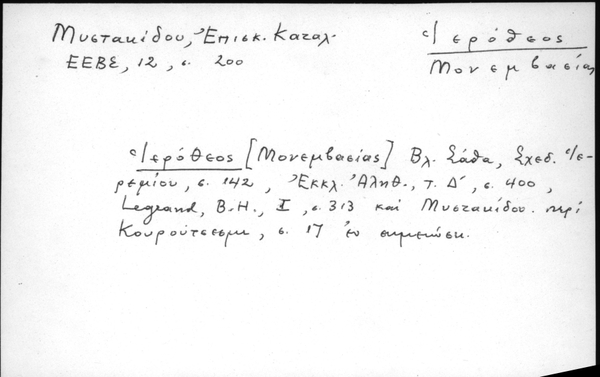 Μυστακίδου, Ἐπισκ. Καταλ.
ΕΕΒΣ, 12, σ. 200
Ἱερόθεος
Μονεμβασίας
Ἱερόθεος [Μονεμβασίας] Βλ. Σάθα, Σχεδ. Ἱε-
ρεμίου, σ. 142, Ἐκκλ. Ἀλήθ., τ. Δ΄, σ. 400,
Legrand, B.H., I, σ. 313 καί Μυστακίδου. περί
Κουρούτσεσμε, σ. 17 ἐν σημειώσει.